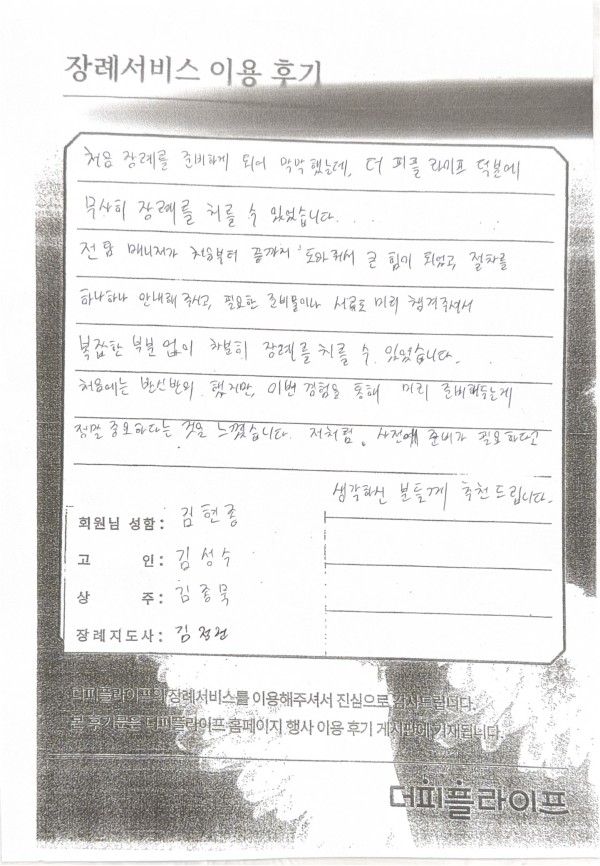 장례서비스 이용 후기
처음 장례를 준비하게 되어 막막했는데, 더 피플 라이프 덕분에
무사히 장례를 치를 수 있었습니다.
전담 매니저가 처음부터 끝까지 도와줘서 큰 힘이 되었고, 절차를
하나하나 안내해 주시고, 필요한 준비물이나 서류도 미리 챙겨주셔서
복잡한 부분 없이 차분히 장례를 치를 수 있었습니다.
처음에는 반신반의 했지만, 이번 경험을 통해 미리 준비해두는게
정말 중요하다는 것을 느꼈습니다. 저처럼 사전에 준비가 필요하다고
생각하신 분들께 추천드립니다.
회원님 성함: 김현종
고 인: 김성수
상 주: 김종묵
장례지도사: 김정건
더피플라이프의 장례서비스를 이용해주셔서 진심으로 감사드립니다.
본 후기글은 더피플라이프 홈페이지 행사 이용 후기 게시판에 기재됩니다.
더피플라이프